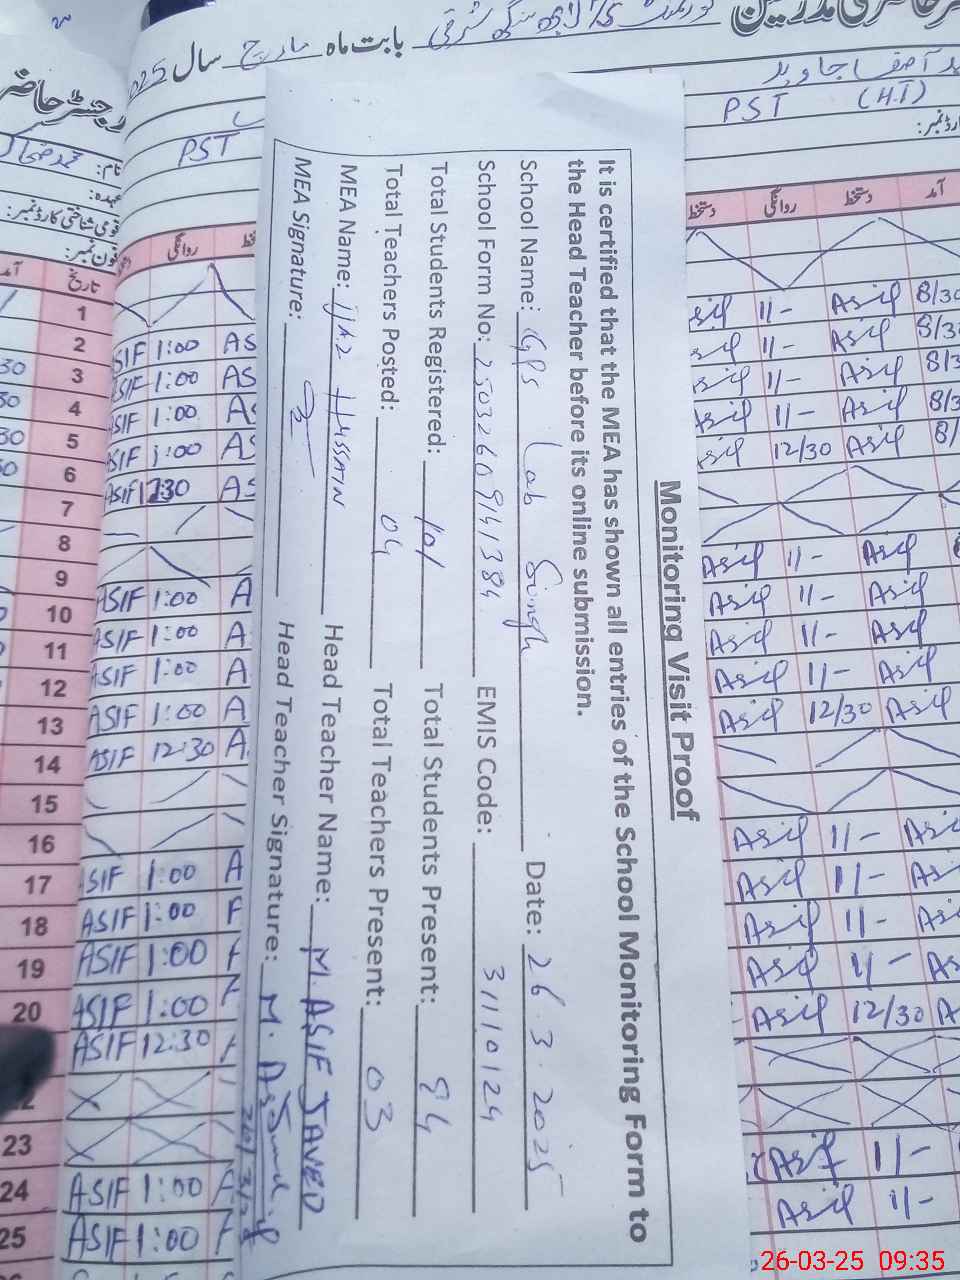 بابت ماہ مارچ سال 2025
PST
PST (H.I)
نام:
عہدہ:
قومی شناختی کارڈ نمبر:
فون نمبر:
تاریخ
روانگی
دستخط روانگی دستخط آمد
Monitoring Visit Proof
It is certified that the MEA has shown all entries of the School Monitoring Form to
the Head Teacher before its online submission.
School Name: GPS Lab Singh Date: 26.3.2025
School Form No: 2503260941384 EMIS Code: 31110124
Total Students Registered: 101 Total Students Present: 84
Total Teachers Posted: 04 Total Teachers Present: 03
MEA Name: Head Teacher Name: M. ASIF JAVED
MEA Signature: Head Teacher Signature: M. Asif
1
2 ASIF 1:00 AS
3 ASIF 1:00 AS
4 ASIF 1:00 AS
5 ASIF 1:00 AS
6 ASIF 1230 AS
7
8
9 ASIF 1:00 A
10 ASIF 1:00 A
11 ASIF 1:00 A
12 ASIF 1:00 A
13 ASIF 12:30 A
14
15
16 ASIF 1:00 A
17 ASIF 1:00
18 ASIF 1:00
19 ASIF 1:00
20 ASIF 12:30
23
24 ASIF 1:00
25 ASIF 1:00
Asif 11- Asif 8/30
Asif 11- Asif 8/30
Asif 11- Asif 8/3
Asif 11- Asif 8/3
Asif 12/30 Asif 8/
Asif 11- Asif
Asif 11- Asif
Asif 11- Asif
Asif 11- Asif
Asif 12/30 Asif
Asif 11- Asif
Asif 11- Asi
Asif 11- Asi
Asif 11- As
Asif 12/30 A
Asif 11-
Asif 11-
26-03-25 09:35